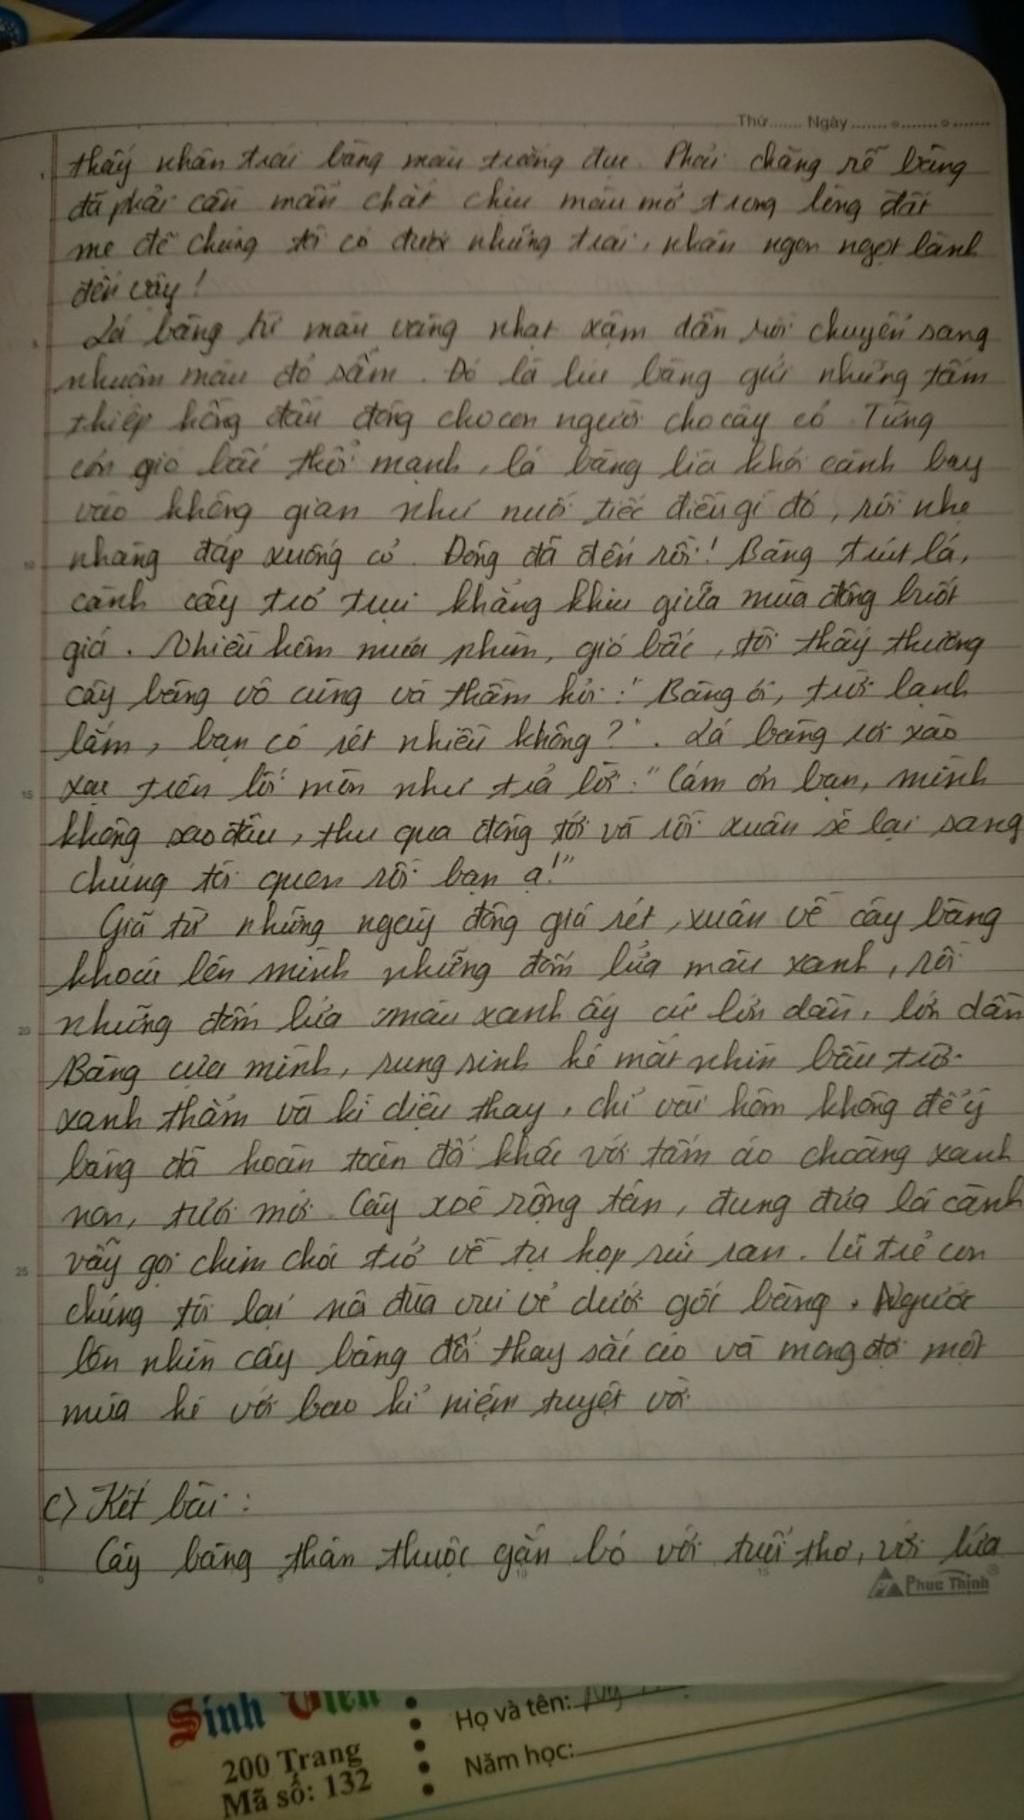 Thứ....... Ngày.......
thấy nhân trái bàng màu trắng đục. Phải chăng rễ bàng
đã phải cần mẫn chắt chiu màu mỡ trong lòng đất
mẹ để chúng tôi có được những trái, nhân ngon ngọt lành
đến vậy!
Lá bàng từ màu vàng nhạt xậm dần rồi chuyển sang
nhuộm màu đỏ sẫm. Đó là lúc bàng gửi những tấm
thiệp hồng đầu đông cho con người cho cây cỏ. Từng
cơn gió bấc thổi mạnh, lá bàng lìa khỏi cành bay
vào không gian như nuối tiếc điều gì đó, rồi nhẹ
nhàng đáp xuống cỏ. Đông đã đến rồi! Bàng trút lá,
cành cây trơ trụi khẳng khiu giữa mùa đông buốt
giá. Nhiều hôm mưa phùn, gió bấc, tôi thấy thương
cây bàng vô cùng và thầm hỏi: "Bàng ơi, trời lạnh
lắm, bạn có rét nhiều không?". Lá bàng rơi xào
xạc trên lối mòn như trả lời: "Cám ơn bạn, mình
không sao đâu, thu qua đông tới và rồi xuân sẽ lại sang
chúng tôi quen rồi bạn ạ!"
Giã từ những ngày đông giá rét, xuân về cây bàng
khoác lên mình những đốm lửa màu xanh, rồi
những đốm lửa màu xanh ấy cứ lớn dần, lớn dần
Bàng cựa mình, rung rinh hé mắt nhìn bầu trời
xanh thẳm và kì diệu thay, chỉ vài hôm không để ý
bàng đã hoàn toàn đổi khác với tấm áo choàng xanh
non, tươi mới. Cây xoè rộng tán, đung đưa lá cành
vẫy gọi chim chóc trở về tụ họp ríu ran. Lũ trẻ con
chúng tôi lại nô đùa vui vẻ dưới gốc bàng. Người
lớn nhìn cây bàng đổi thay sắc áo và mong đợi một
mùa hè với bao kỉ niệm tuyệt vời.
c) Kết bài:
Cây bàng thân thuộc gắn bó với tuổi thơ, với lứa
Phúc Thịnh
Sinh Viên
200 Trang
Mã số: 132
Họ và tên:
Năm học: